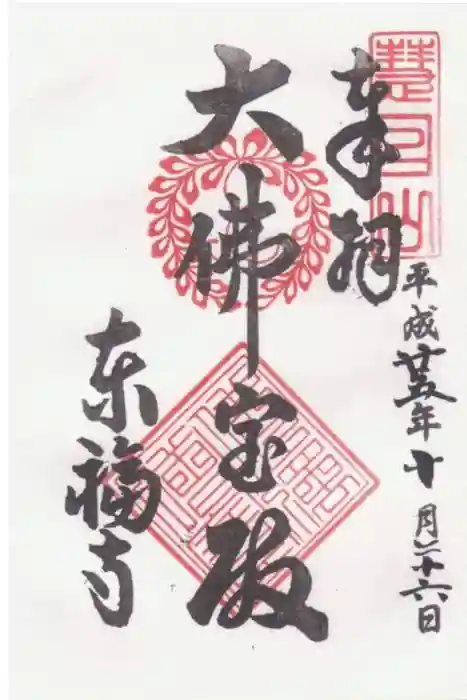 奉拝
平成廿五年十月二十六日
大佛宝殿
东福寺
慧日山